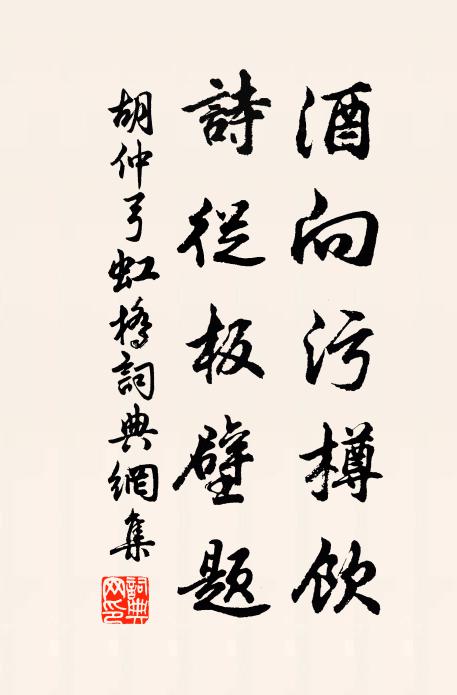 酒向污樽飲
詩從板壁題
胡仲弓虹橋詞典網集
詞典網印